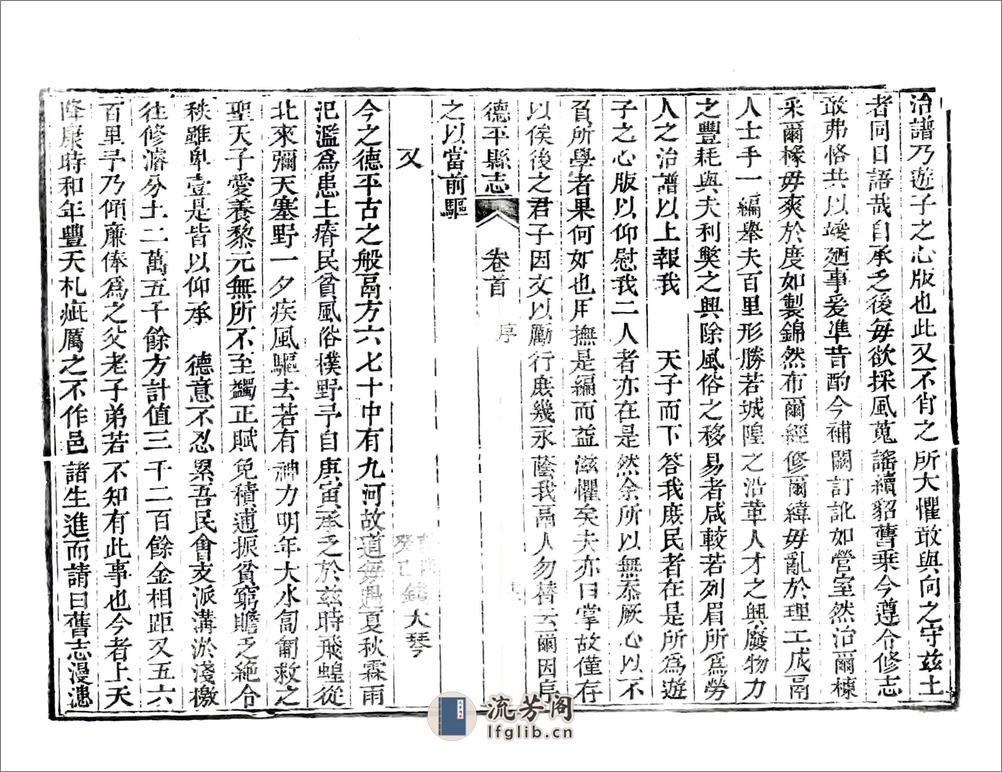 治譜乃遊子之心版也此又不肖之所大懼敢與向之守兹土
者同日語哉自承乏後每欲採風蒐謠續貂舊乘今遵令修志
敢弗恪共以竣廼事爰準昔酌今補闕訂訛如營室然治爾棟
采爾椽毋爽於度如製錦然布爾經修爾緯毋亂於理工成鬲
人士手一編舉夫百里形勝若城隍之沿革人才之興廢物力
之豐耗與夫利獘之興除風俗之移易者咸較若列眉所爲勞
人之治譜以上報我　天子而下答我庶民者在是所爲遊
子之心版以仰慰我二人者亦在是然余所以無忝厥心以不
負所學者果何如也用撫是編而益滋懼矣夫亦曰掌故僅存
以俟後之君子因文以勵行庶幾永蔭我鬲人勿替云爾因弁
德平縣志　卷首　序
之以當前驅
又
錢大琴
癸巳
今之德平古之般鬲方六七十中有九河故道每遇夏秋霖雨
汜濫爲患土瘠民貧風俗樸野予自庚寅承乏於兹時飛蝗從
北來彌天塞野一夕疾風驅去若有神力明年大水匍匐救之
聖天子愛養黎元無所不至蠲正賦免積逋振貧窮贍乏絶令
秩雖卑壹是皆以仰承　德意不忍累吾民會支派溝淤淺檄
往修濬分土二萬五千餘方計值三千二百餘金相距又五六
百里予乃傾廉俸爲之父老子弟若不知有此事也今者上天
降康時和年豐天札疵厲之不作邑諸生進而請曰舊志漫漶
流芳阁
lfglib.cn